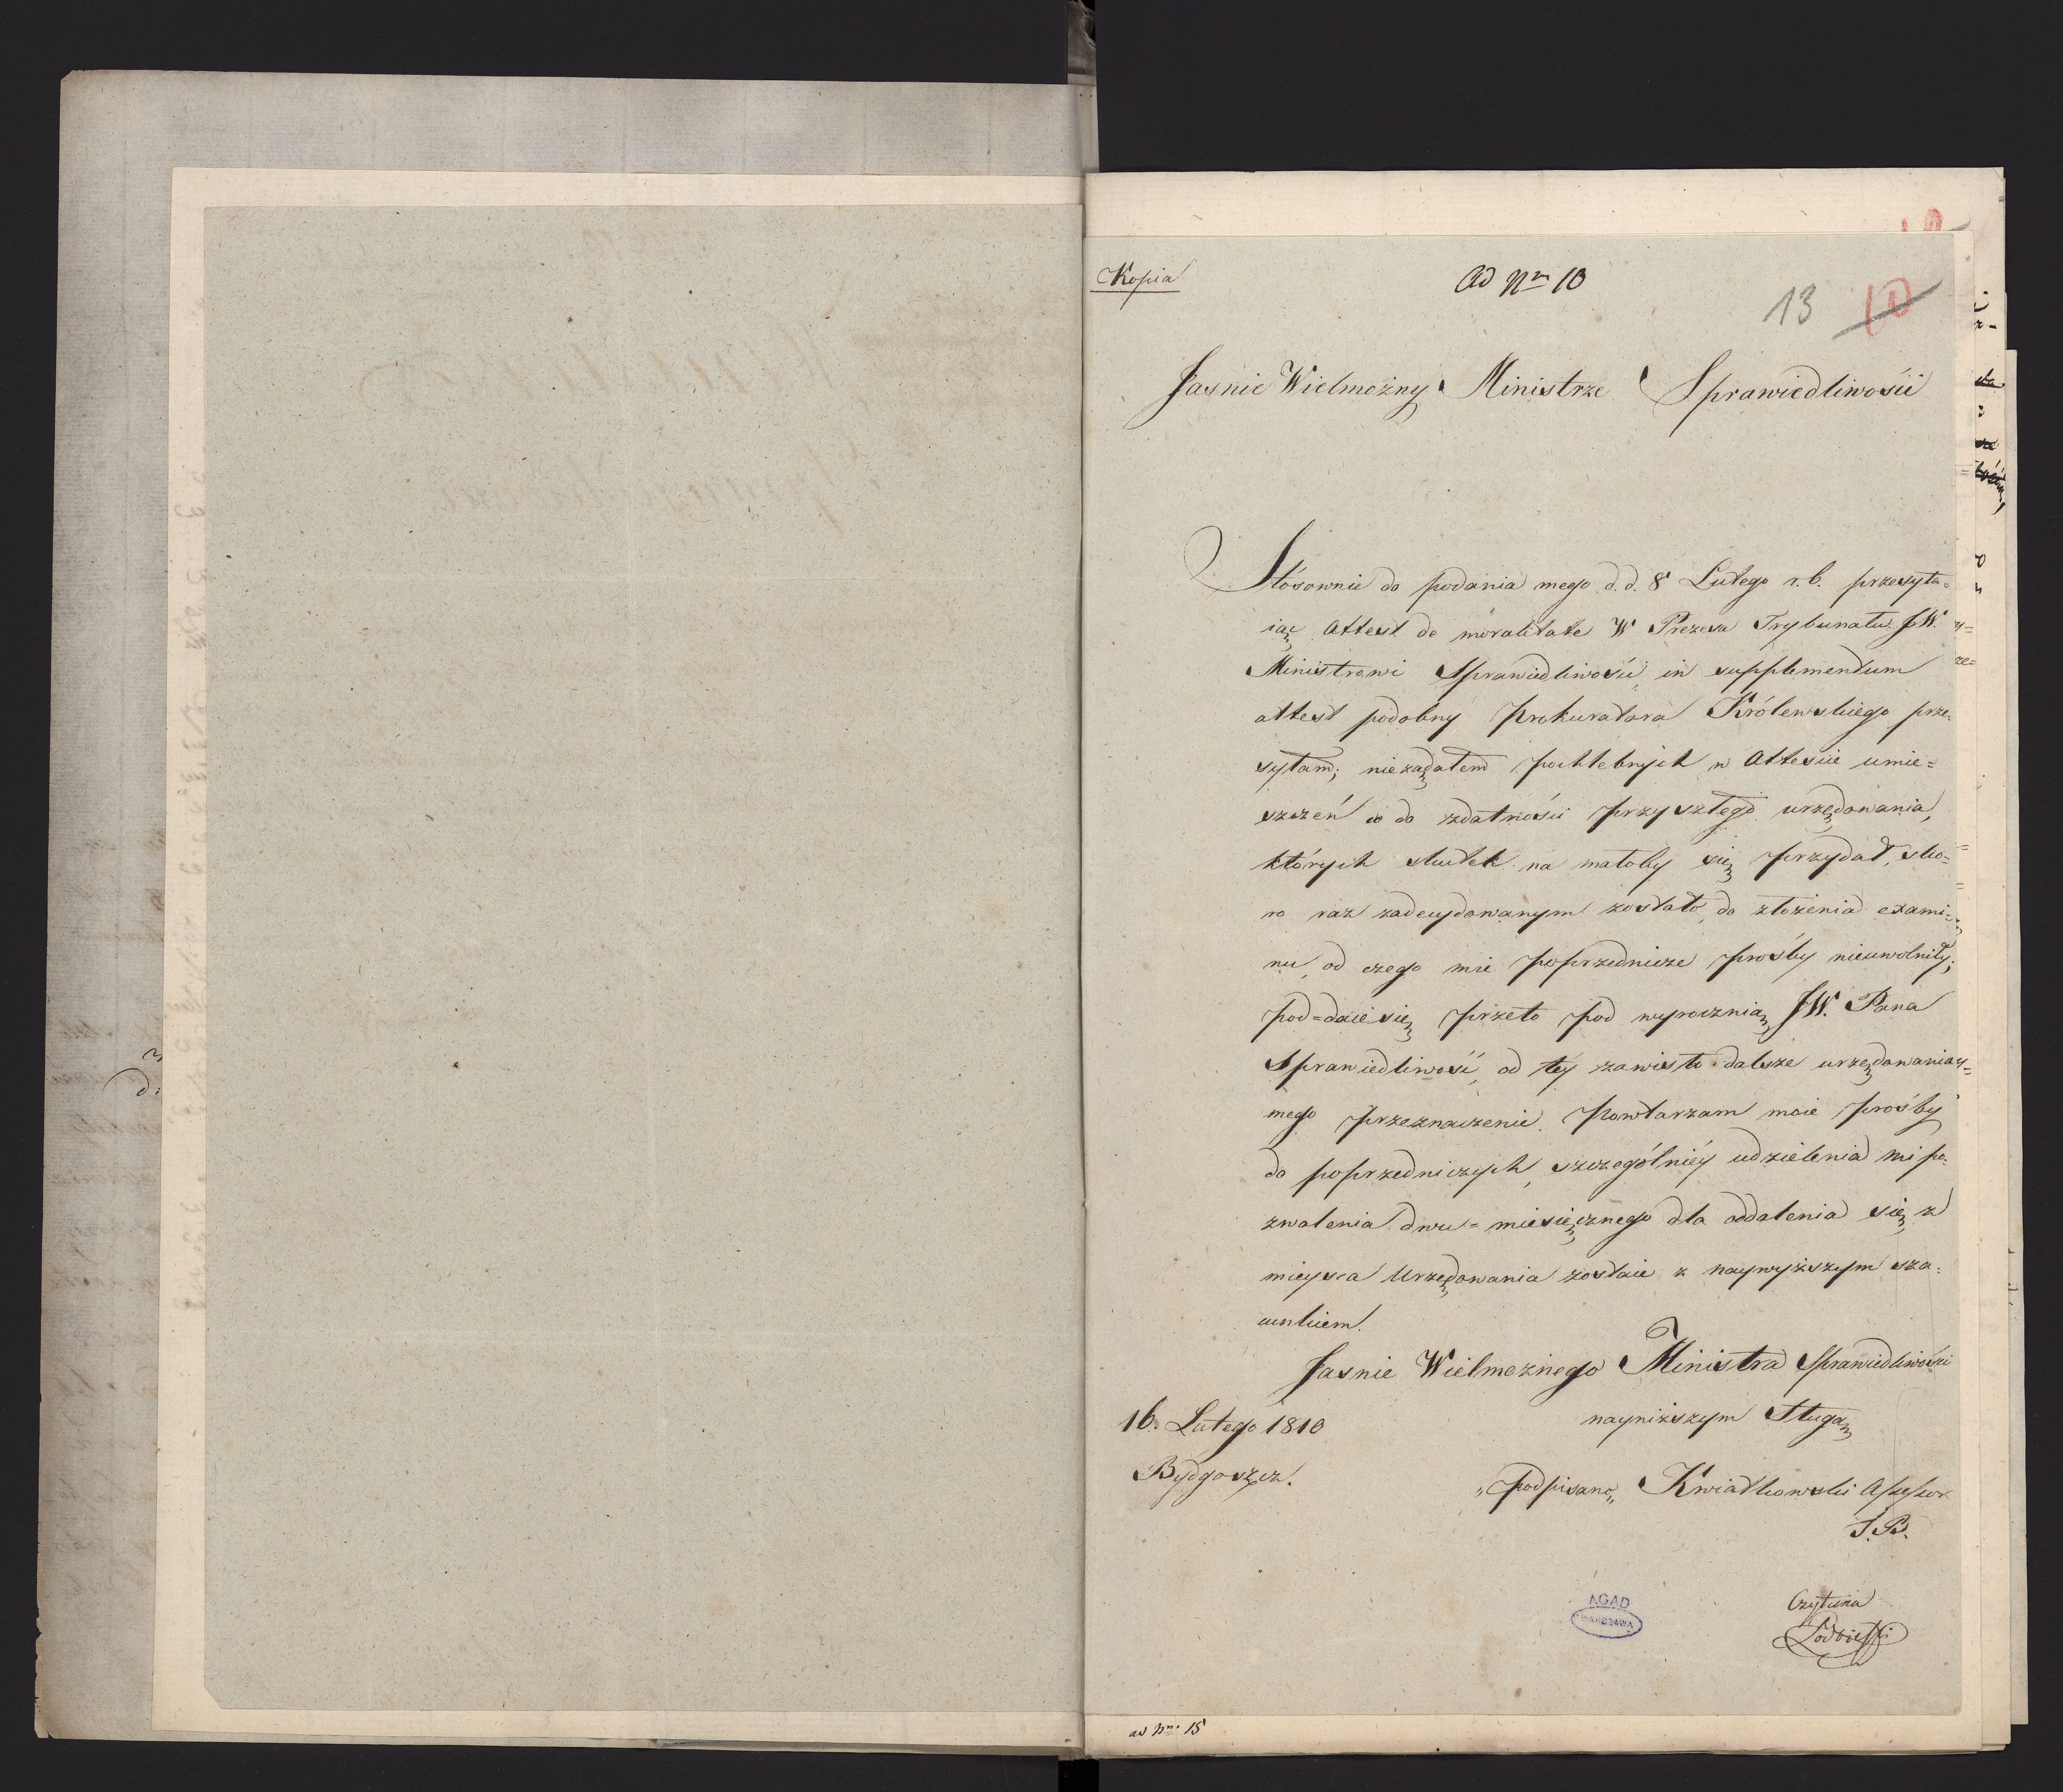 Kopia
Ad Nrm 10
13 10
Jasnie Wielmożny Ministrze Sprawiedliwości
Stósownie do podania mego d.d. 8 Lutego r.b. przesyła=
iąc Attest de moralitate W Prezesa Trybunału JW.
Ministrowi Sprawiedliwości, in supplementum
attest podobny Prokuratora Królewskiego prze=
syłam; nieżądałem pochlebnych w Attescie umie=
szczeń co do zdatności przyszłego urzędowania,
których skutek na małoby się przydał, sko=
ro raz zadecydowanym zostało, do złożenia exami=
nu, od czego mie poprzednicze prośby nieuwolniły;
pod=daie się przeto pod wyrocznią JW. Pana
Sprawiedliwość, od tey zawisło dalsze urzędowania
mego przeznaczenie. Powtarzam moie prośby
do poprzedniczych, szczególniéy udzielenia mi po=
zwolenia dwu=miesięcznego dla oddalenia się z
mieysca Urzędowania zostaie z naywyższym sza=
cunkiem.
Jasnie Wielmożnego Ministra Sprawiedliwości
nayniższym Sługą
16. Lutego 1810
Bydgoszcz.
"podpisano" Kwiatkowski Assessor
S.B.
AGAD
WARSZAWA
Czytana
ad Nrm 15